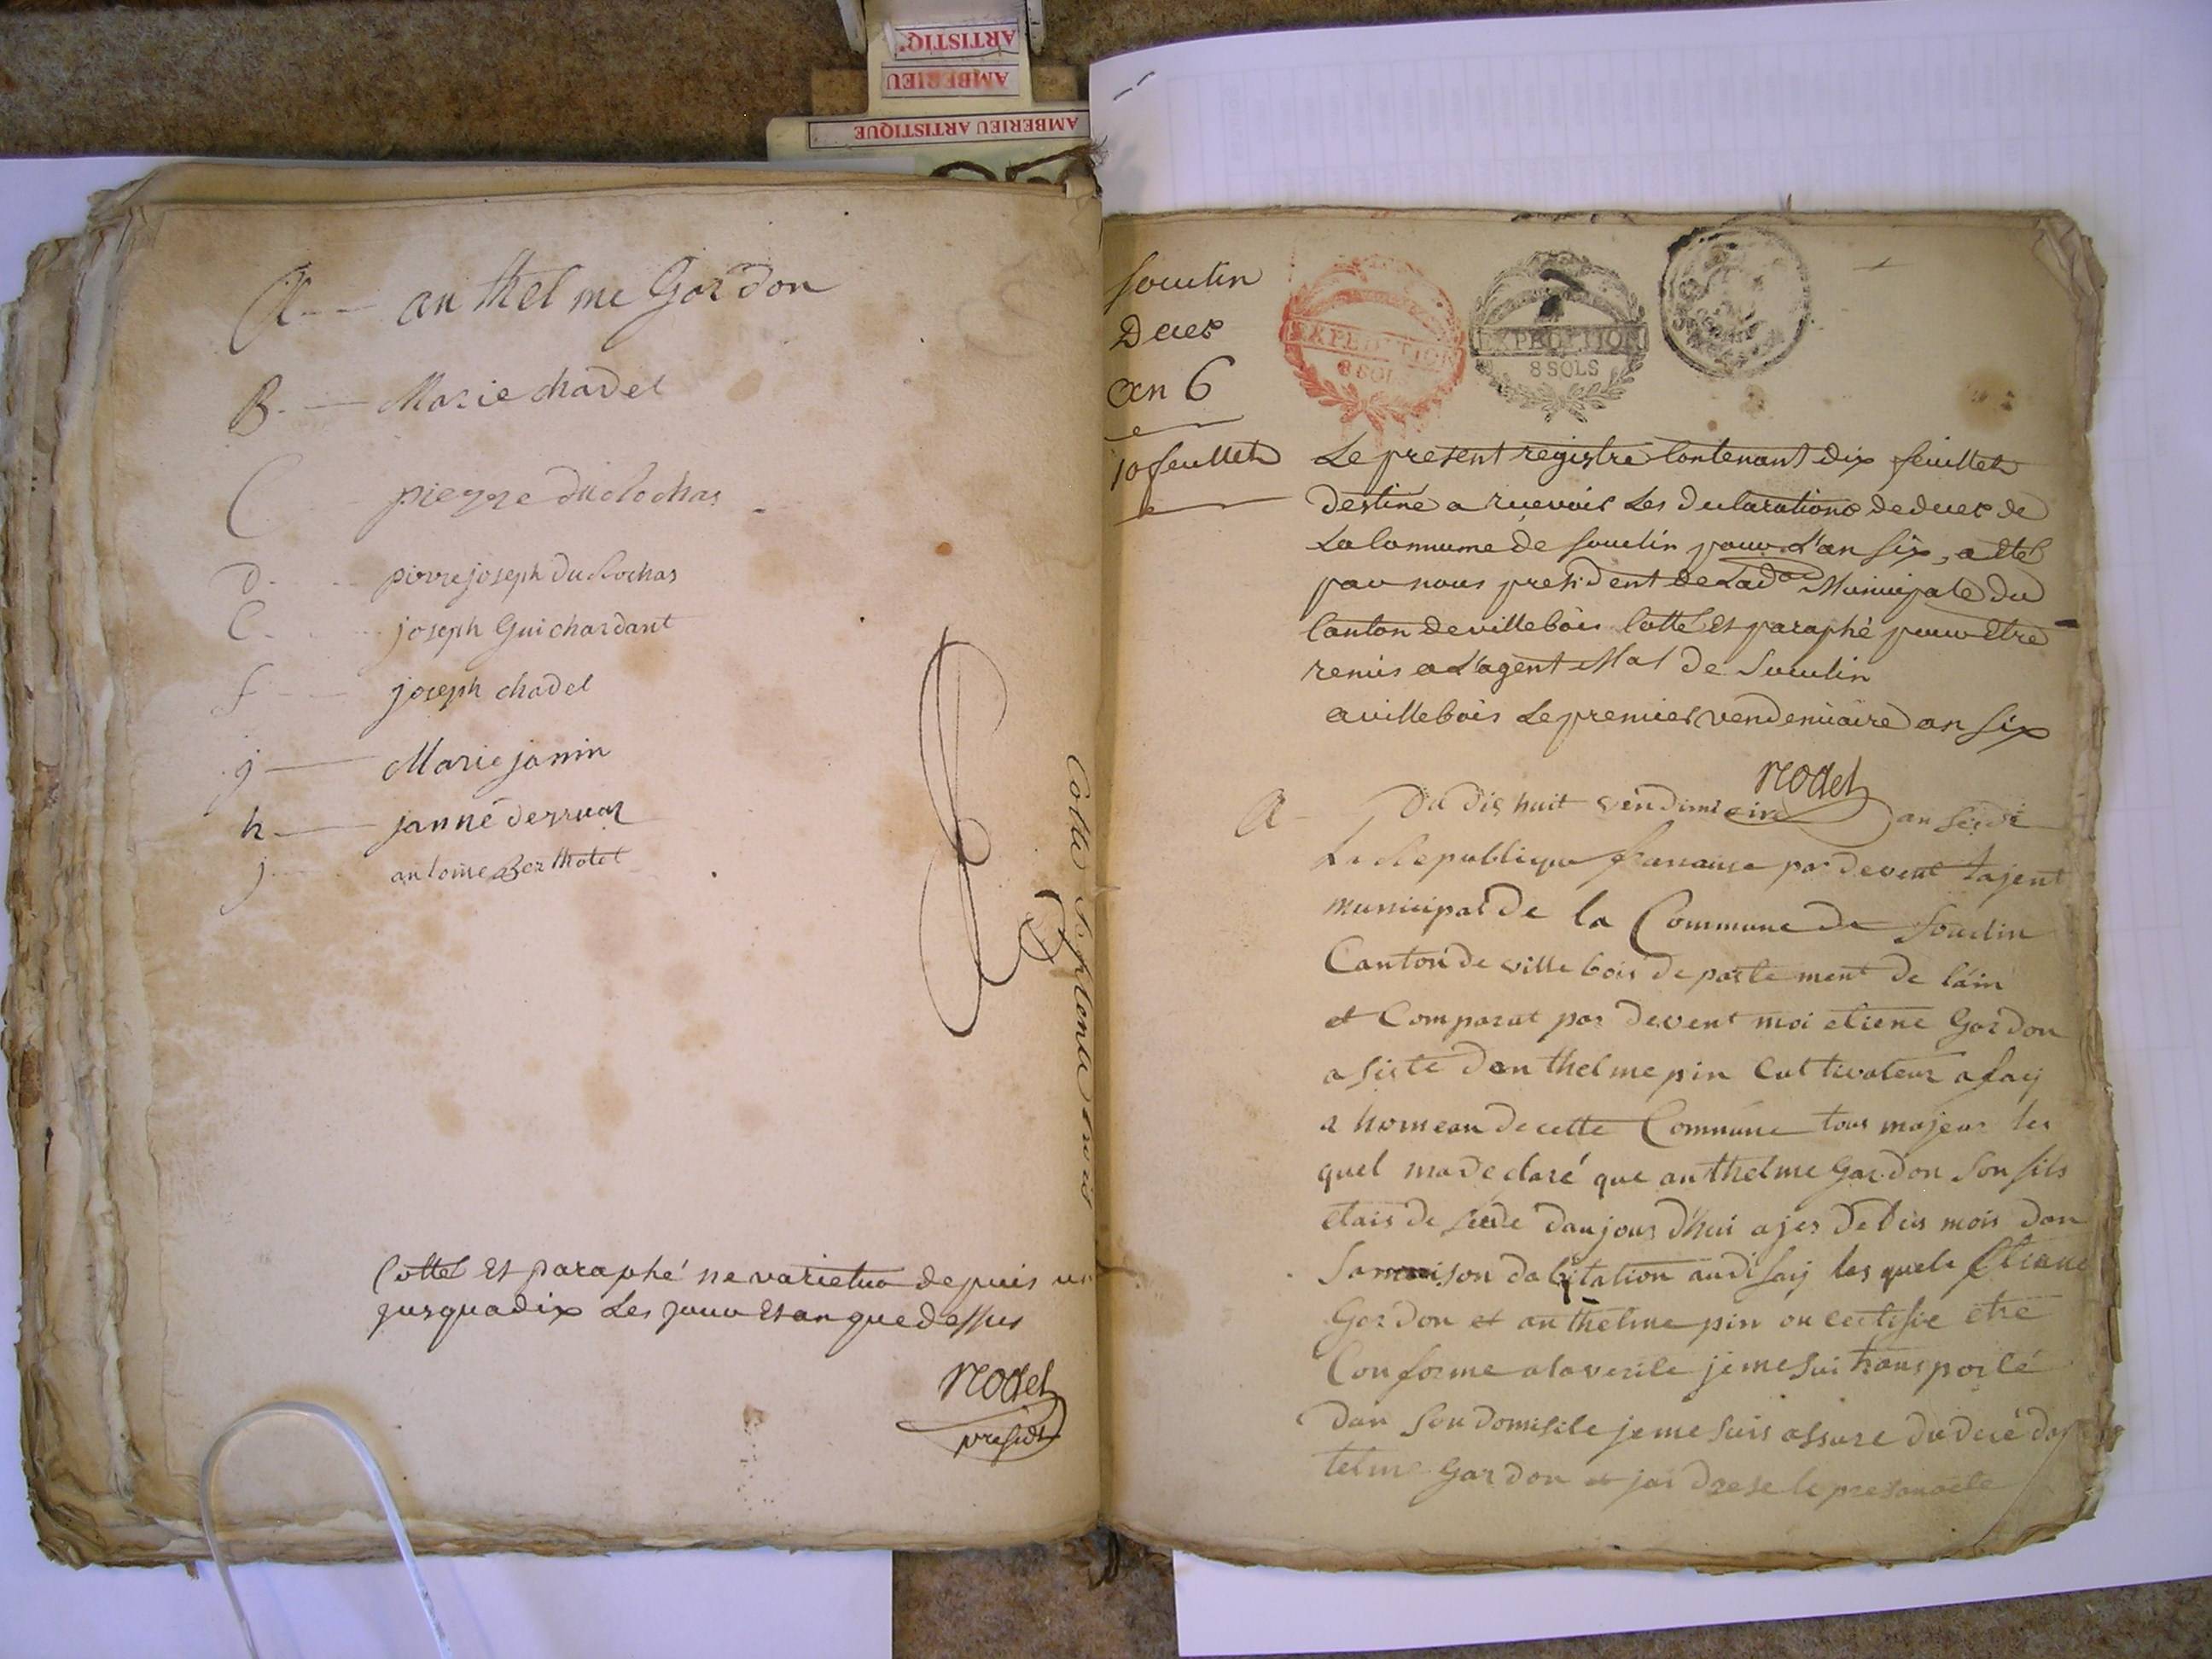 ARTISTIQ
AMBERIEU
AMBERIEU ARTISTIQUE
A -- anthelme Gordon
B. — Marie chadel
C pierre duclochas
D. pierre joseph Duclochas
E. joseph Guichardant
f joseph chadel
g — Marie janin
h — janne derruaz
j antoine Bertholet
Cottél et paraphé ne varietur depuis un
jusqua dix les jour et an que dessus
Nodet
presidt
Cotte Septente trois
Souclin
Deces
an 6
10 feuillets
EXPEDITION
8 SOLS
EXPEDITION
8 SOLS
Le present registre Contenant dix feuillets
destiné a recevoir les declarations de deces de
La Commune de souclin pour l'an six, a étté
par nous president de Lad.on Municipale du
Canton de villebois Cotté et paraphé pour Etre
remis a L'agent Mal de Souclin
a villebois Le premier vendemiaire an six
Nodet
A - Du dis huit vendimiaire an sis de
La Republique francause par devent Lajent
municipal de la Commune de Souclin
Canton de ville bois de parte ment de láin
et Comparat par devent moi etiene Gordon
a siste dan thelme pin Cultivateur a faij
a homeau de cette Commune tous majeur les
quel ma declaré que anthelme Gordon Son fils
etais de sede daujour d'hui ajes de dis mois dan
Sa maison dabitation audi faij les quels Etiene
Gordon et anthelme pin on certifie etre
Conforme a la verite je me sui transporté
dan son domisile je me suis assure du decé dan
telme Gordon et jai drese le presan acte